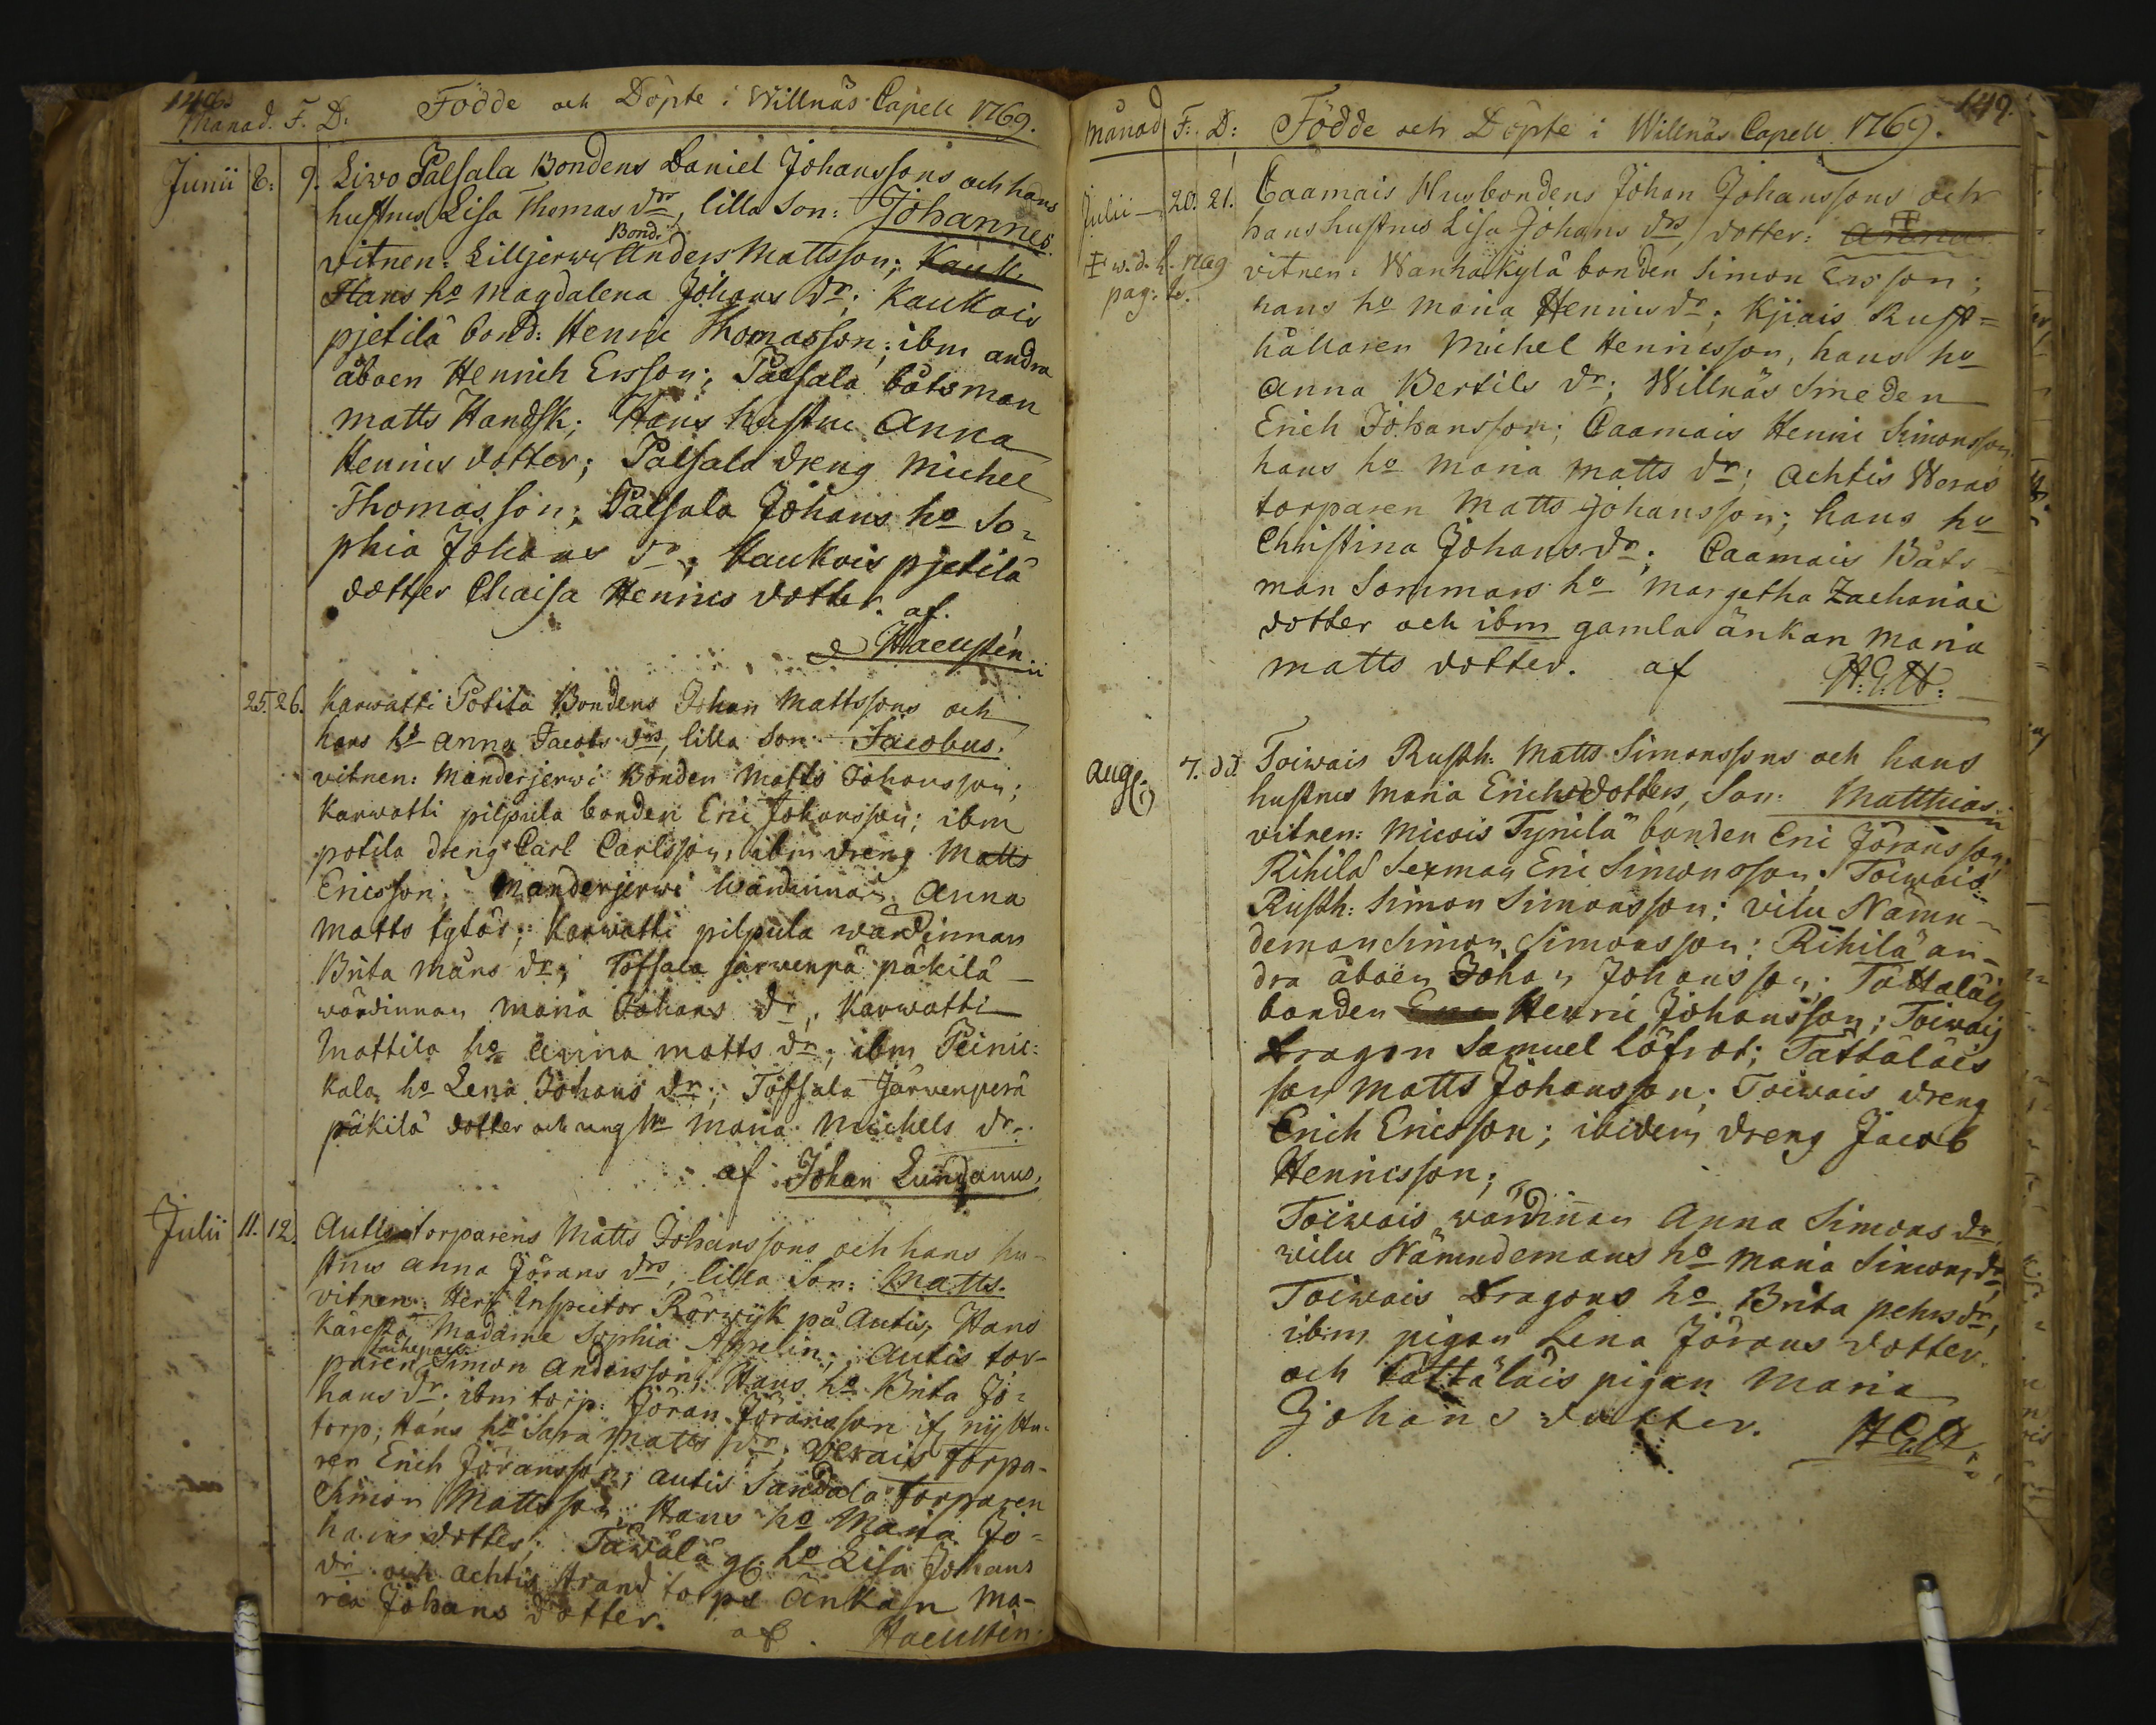 148.
Månad. F. D. Födde och Döpte i Willnäs Capell 1769.
Junii 8. 9. Livo Palsala Bondens Daniel Johanssons och hans
hustrus Lisa Thomas drs, lilla Son: Johannes.
Bond.
vitnen: Lilljerwi Anders Mattsson; Kauk.
Hans ho Magdalena Johans dr; Kaukois
pjetilä bond: Henric Thomasson; ibm andra
åboen Henrich Ersson; Palsala båtsman
Matts Handsk; Hans hustru Anna
Henrics dotter; Palsala dreng Michel
Thomasson; Palsala Johans ho So-
phia Johans dr; Kaukois pjetilä
dotter Chaisa Henrics dotter. af
Haeustén
25. 26. Karwatti Potila Bondens Johan Mattssons och
hans ho Anna Jacobs drs, lilla Son: Jacobus.
vitnen: Manderjerwi Bonden Matts Johansson;
Karwatti pilpula bonden Eric Johansson; ibm
potila dreng Carl Carlsson, ibm dreng Matts
Ericsson; Manderjerwi wärdinnan Anna
Matts tytär; Karwatti pilpula wärdinnan
Brita Måns dr; Töfsala järwenpä päkilä
wärdinnan Maria Johans dr, Karwatti
Mattila ho Anna Matts dr; ibm Peinic:
kala ho Lena Johans dr; Töfsala Järvenperä
päkilä dotter och ung Maria Michels dr.
af Johan Lundanus.
Julii 11. 12. Autis torparens Matts Johanssons och hans hu-
strus Anna Jörans drs, lilla Son: Matts.
vitnen: Herr Inspector Rörwyk på Autis, Hans
Käresta Madame Sophia Appelin; Autis tor-
paren Simon Andersson; Hans ho Brita Jo-
hans dr; ibm torp: Jöran Jöransson
torp; Hans ho Sara Matts dr; Werais torpa-
ren Erich Jöransson; Autis Sandala torparen
Simon Mattsson; Hans ho Maria Jo-
hans dotter; Täwälä gl. ho Lisa Johans
dr och Achtis Strand torps Änkan Ma-
ria Johans dotter. af Haeustén.
149.
Månad F. D: Födde och Döpte i Willnäs Capell 1769.
Julii 20. 21. Caamais Husbondens Johan Johanssons och
hans hustrus Lisa Johans drs, dotter: Anna
vitnen: Wanhakylä bonden Simon Ersson;
pag:
hans ho Maria Henrics dr; Kjiais Rust-
hållaren Michel Henricsson, hans ho
Anna Bertils dr; Willnäs Smeden
Erich Johansson; Caamais Henric Simonsson
hans ho Maria Matts dr; Achtis Weras
torparen Matts Johansson; hans ho
Christina Johans dr; Caamais Båts-
man Sommars ho Margetha Zachariae
dotter och ibm gamla änkan Maria
Matts dotter. af H:
Aug. 7. dd. Toiwais Rusth. Matts Simonssons och hans
hustrus Maria Erichsdotters, Son: Matthias.
vitnen: Micois Tynilä bonden Eric Jöransson,
Rihilä Sexman Eric Simonsson; Toiwais
Rusth: Simon Simonsson; vilu Nämn-
deman Simon Simonsson; Rihilä an-
dra åboen Johan Johansson; Tättäläis
bonden Eric Henric Johansson; Toiwais
Dragon Samuel Löfrot; Tättäläis
son Matts Johansson; Toiwais dreng
Erich Ericsson; ibidem dreng Jacob
Henricsson;
Toiwais wärdinnan Anna Simons dr,
vilu Nämndemans ho Maria Simons dr,
Toiwais Dragons ho Brita pehrs dr,
ibm pigan Lena Jörans dotter.
och Tättäläis pigan Maria
Johans dotter.